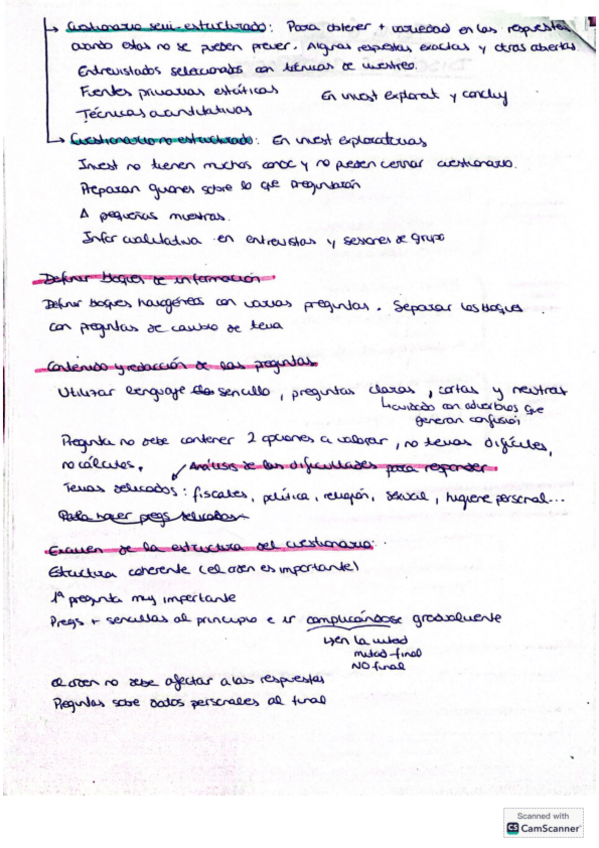 Cuestionario semi-estructurado: Para obtener + variedad en las respuestas
cuando estas no se pueden prever. Algunas respuestas exactas y otras abiertas.
Entrevistados seleccionados con técnicas de muestreo.
Fuentes primarias estáticas En invest explorat y concluy
Técnicas cuantitativas
Cuestionario no estructurado: En invest exploratorias
Invest no tienen muchos conoc y no pueden cerrar cuestionario.
Preparan guiones sobre lo que preguntarán
A pequeñas muestras.
Infor cualitativa en entrevistas y sesiones de grupo
Definir bloques de información
Definir bloques homogéneos con varias preguntas. Separar los bloques
con preguntas de cambio de tema
Contenido y redacción de las preguntas
Utilizar lenguaje sencillo, preguntas claras, cortas y neutras
↳ cuidado con adverbios que
generan confusión
Pregunta no debe contener 2 opciones a valorar, no temas difíciles,
no cálculos. Análisis de las dificultades para responder
Temas delicados: fiscales, política, religión, sexual, higiene personal...
Para hacer pregs delicadas
Examen de la estructura del cuestionario:
Estructura coherente (el orden es importante)
1ª pregunta muy importante
Pregs + sencillas al principio e ir complicándose gradualmente
↳ en la mitad
mitad-final
NO final
el orden no debe afectar a las respuestas
Preguntas sobre datos personales al final
Scanned with
CS CamScanner